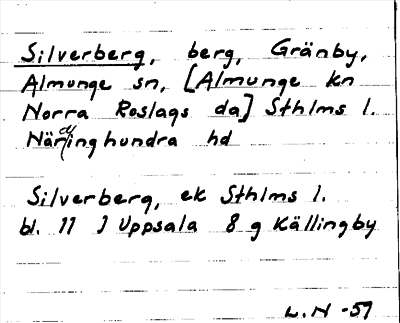 Silverberg, berg, Gränby,
Almunge sn, [Almunge kn
Norra Roslags da] Sthlms l.
Närdinghundra hd
Silverberg, ek Sthlms l.
bl. 11 J Uppsala 8 g Källingby
L.N -57